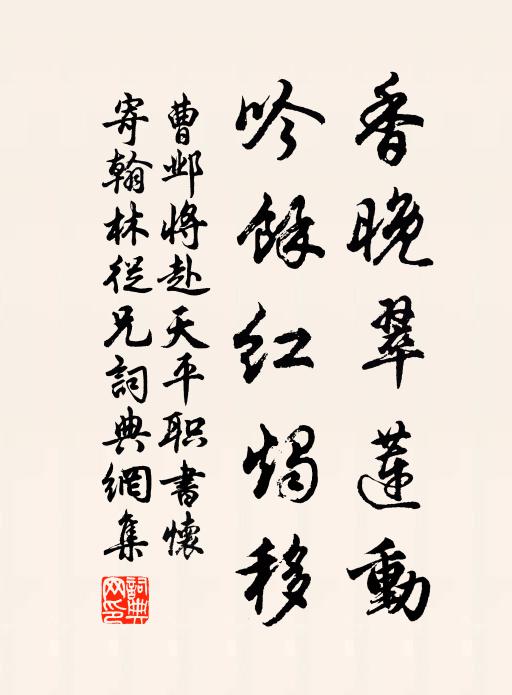 香晚翠蓮動
吟餘紅燭移
曹邺将赴天平职書懷
寄翰林從兄詞典網集
詞典
网印